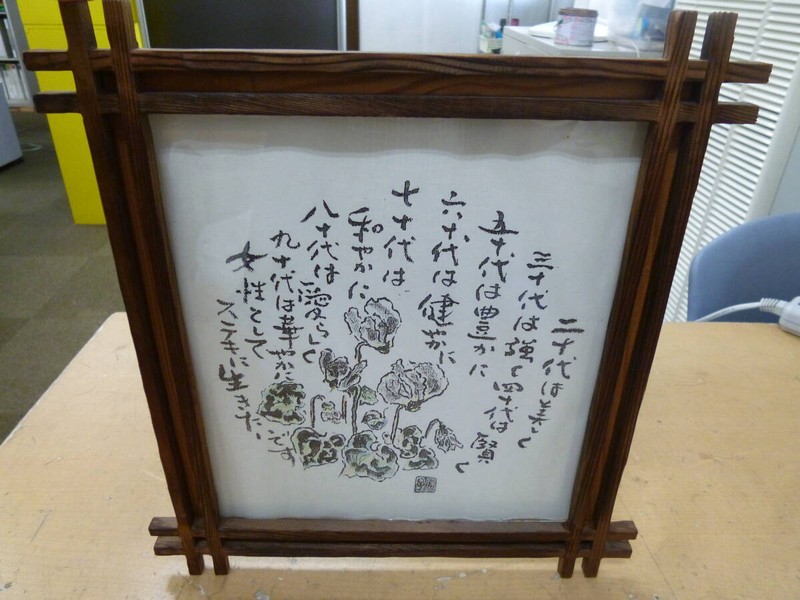 二十代は美しく
三十代は強く四十代は賢く
五十代は豊かに
六十代は健やかに
七十代は
和やかに
八十代は愛らしく
九十代は華やかに
女性として
ステキに生きたいです